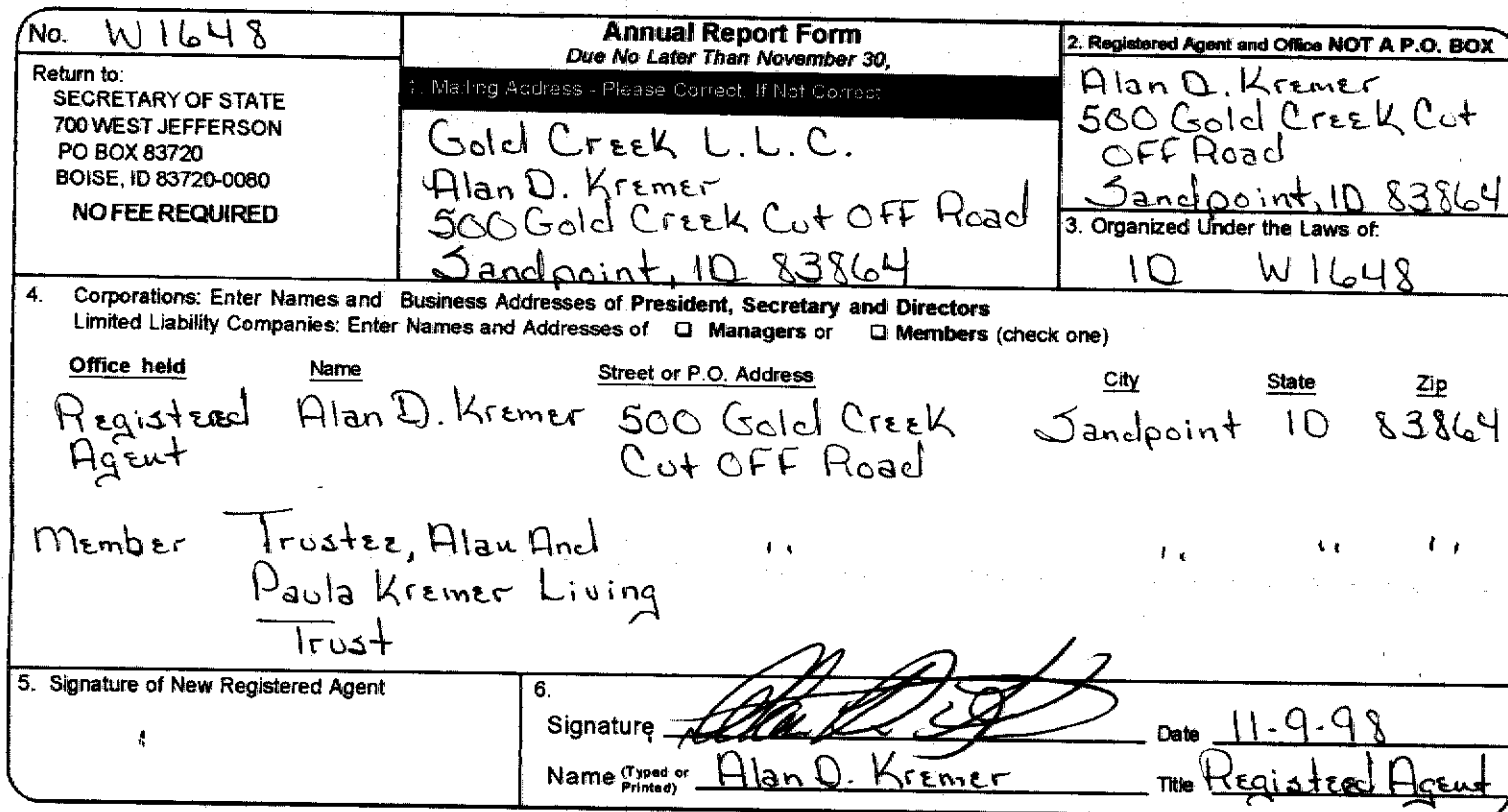 No. W1648
Return to:
SECRETARY OF STATE
700 WEST JEFFERSON
PO BOX 83720
BOISE, ID 83720-0080
NO FEE REQUIRED
Annual Report Form
Due No Later Than November 30,
1. Mailing Address - Please Correct, If Not Correct
Gold Creek L.L.C.
Alan D. Kremer
500 Gold Creek Cut OFF Road
Sandpoint, ID 83864
2. Registered Agent and Office NOT A P.O. BOX
Alan D. Kremer
500 Gold Creek Cut
OFF Road
Sandpoint, ID 83864
3. Organized Under the Laws of:
ID W1648
4. Corporations: Enter Names and Business Addresses of President, Secretary and Directors
Limited Liability Companies: Enter Names and Addresses of ☐ Managers or ☐ Members (check one)
Office held Name Street or P.O. Address City State Zip
Registered Alan D. Kremer 500 Gold Creek Sandpoint ID 83864
Agent Cut OFF Road
Member Trustee, Alan And " " " "
Paula Kremer Living
Trust
5. Signature of New Registered Agent
6.
Signature
Date 11-9-98
Name (Typed or Printed) Alan D. Kremer
Title Registered Agent